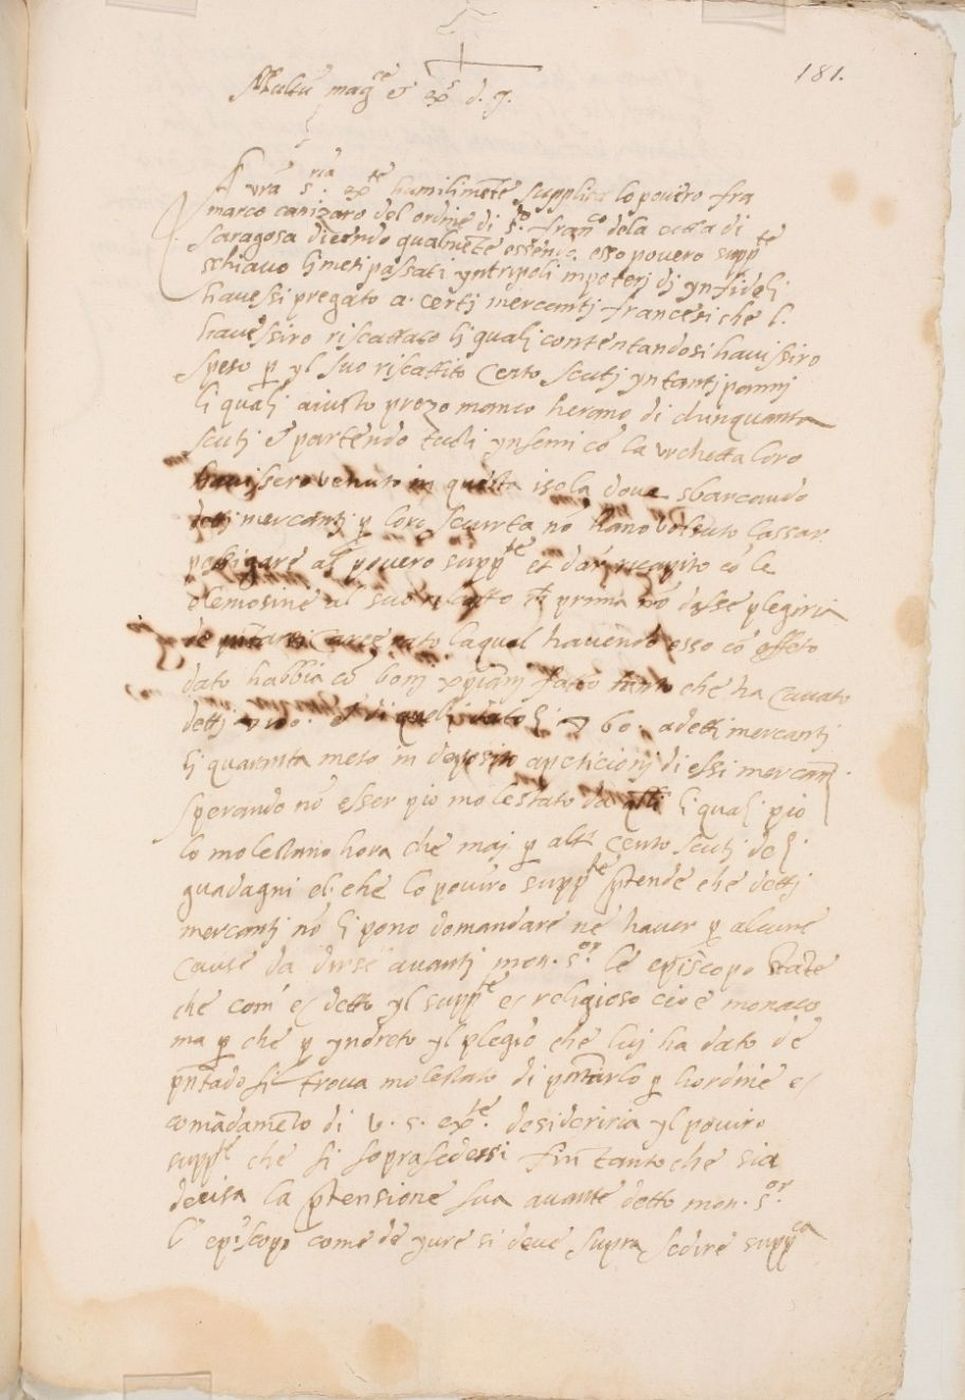 181.
Multu mag.ce et ex.s d. g.
A vra s.ria ex.te humilimente supplica lo povero fra
marco canizaro del ordine di s.to fran.co dela citta di
saragosa dicendo qualmente essendo esso povero supp.te
schiavo li mesi passati yn tripoli in poterj dj ynfidelj
havessi pregato a certj mercantj francesi che l.
havessiro riscattato lj qualj contentandosi havissiro
speso p yl suo riscattito cento scutj yn tantj pannj
li qualj a iusto prezo manco herano di chinquanta
scutj e partendo tutti ynsemi co la urchetta loro
havissero venuto in questa isola dove sbarcando
dettj mercantj p loro scurta no hano voluto lassar
al povero supp.te et dar recapito co le
elemosine al suo prima no dasse plegiria
de carcerato laqual havendo esso co effeto
dato habbia co bonj xpianj fatto tanto che ha cavato
dettj 100. et di quelj 60. a dettj mercantj
lj quaranta meso in deposito a peticionj di essi mercantj
sperando no esser pio molestato da li qualj pio
lo molestano hora che maj p altrj cento scutj delj
guadagni el che lo povero supp.te ptende che dettj
mercantj no lj pono domandare ne haver p alcune
cause da dirse avantj mon. s.or le episcopo stante
che com' e detto yl supp.te e religioso cioe monaco
ma p che p yndreto yl plegio che luj ha dato de
pntado si trova molestato di pntarlo p hordine e
comadameto di v. s. ex.te desideriria yl poviro
supp.te che si soprasedessi fin tanto che sia
decisa la ptensione sua avante detto mon. s.or
l' episcopo come de yure si deve supra sedire supp.ca